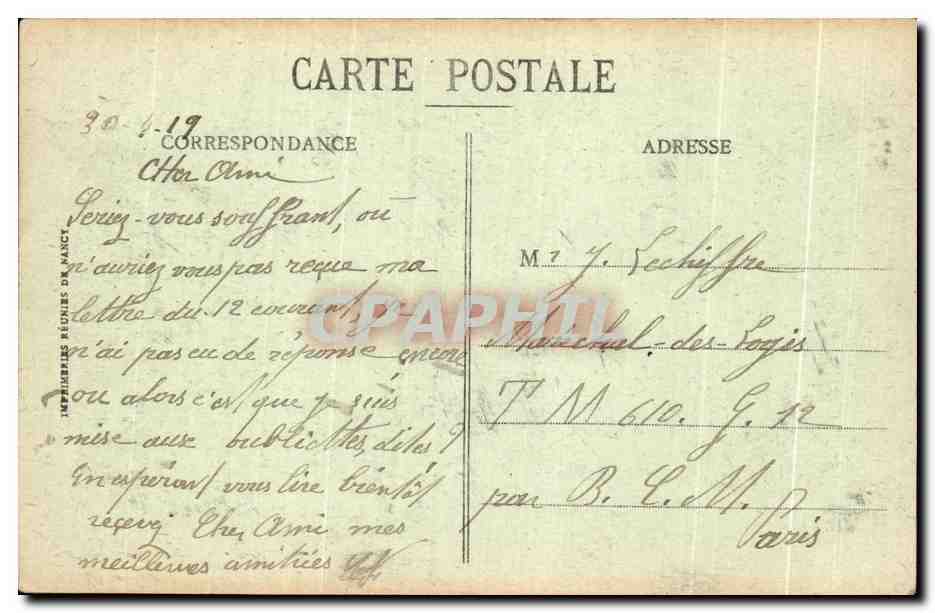 CARTE POSTALE
30-4-19
CORRESPONDANCE
Cher Ami
Seriez-vous souffrant, ou
n'auriez vous pas reçue ma
lettre du 12 courant, je
n'ai pas eu de réponse encore
ou alors c'est que je suis
mise aux oubliettes, dites?
En espérant vous lire bientôt
recevez Cher Ami mes
meilleures amitiés
IMPRIMERIES RÉUNIES DE NANCY
ADRESSE
Mr J. Lechiffre
Maréchal-des-Logis
T M 610. G. 12
par B. C. M.
Paris
CPAPHIL